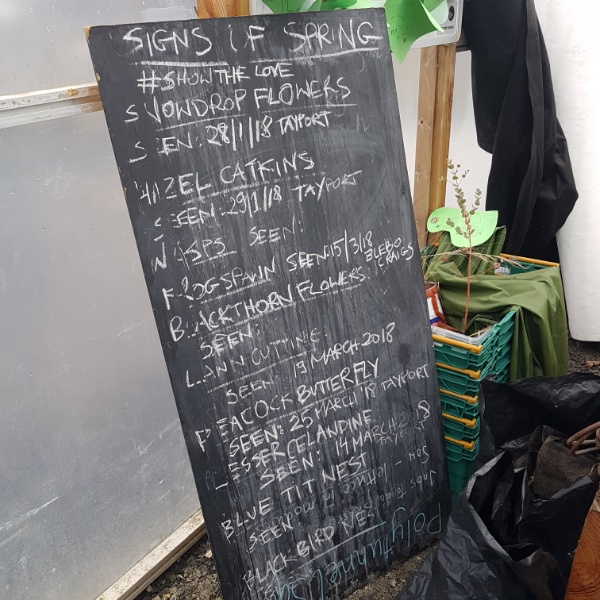 SIGNS OF SPRING
#SHOW THE LOVE
SNOWDROP FLOWERS
SEEN: 28/1/18 TAYPORT
HAZEL CATKINS
SEEN: 29/1/18 TAYPORT
WASPS SEEN:
FROGSPAWN SEEN: 15/3/18 BLEBO CRAIGS
BLACKTHORN FLOWERS:
SEEN:
LAWN CUTTING
SEEN: 19 MARCH 2018
PEACOCK BUTTERFLY
SEEN: 25 MARCH '18 TAYPORT
LESSER CELANDINE
SEEN: 14 MARCH 2018
TAYPORT
BLUE TIT NEST
SEEN
BLACKBIRD NEST
Polytunnel
Jobs
Sow - lettuce